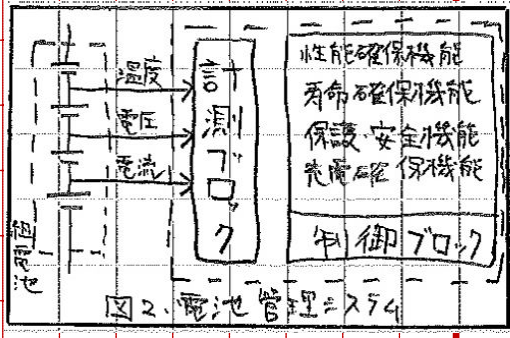 温度
電圧
電流
組電池
計測ブロック
性能確保機能
寿命確保機能
保護・安全機能
充電確保機能
制御ブロック
図2.電池管理システム